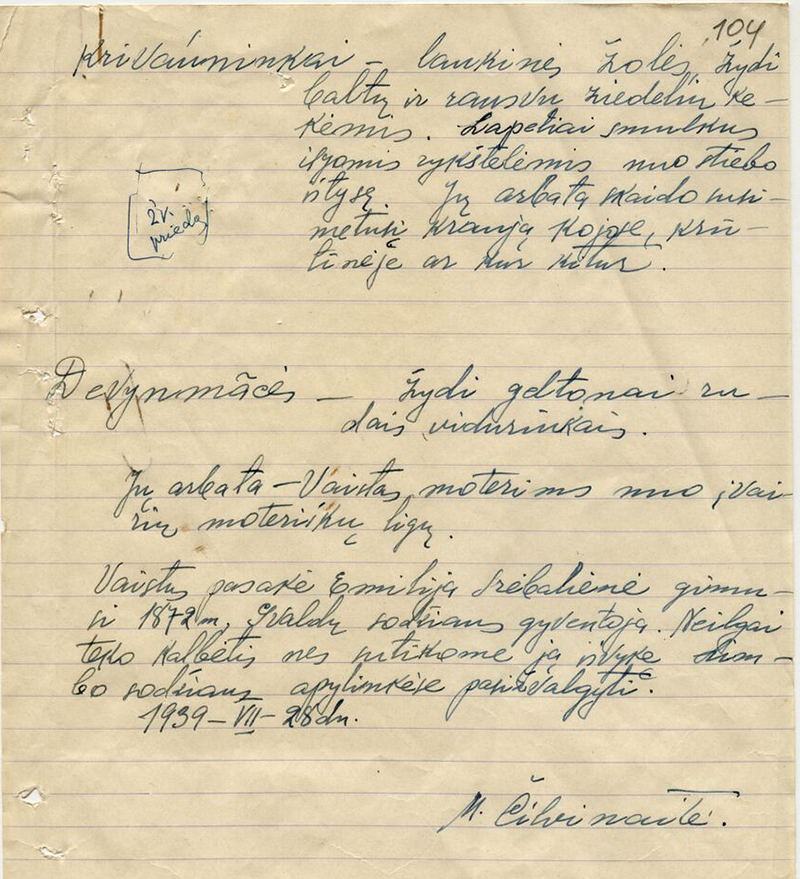 104
Krivaúninkai – laukinės žolės, žydi
baltų ir rausvų žiedelių ke-
kėmis. Lapeliai smulkus
ilgomis rykštelėmis nuo stiebo
ištysę. Jų arbata skaido susi-
metusį kraują kojose, krū-
tinėje ar kur kitur.
žr.
priedą
Devynmācės – žydi geltonai ru-
dais vidurinkais.
Jų arbata – Vaistas moterims nuo įvai-
rių moteriškų ligų.
Vaistus pasakė Emilija Srėbalienė gimu-
si 1872 m. Gvaldų sodžiaus gyventoja. Neilgai
teko kalbėtis nes sutikome ją išvykę
bo sodžiaus apylinkėse pasižvalgyti.
1939–VII–28 dn.
M. Čilvinaitė.